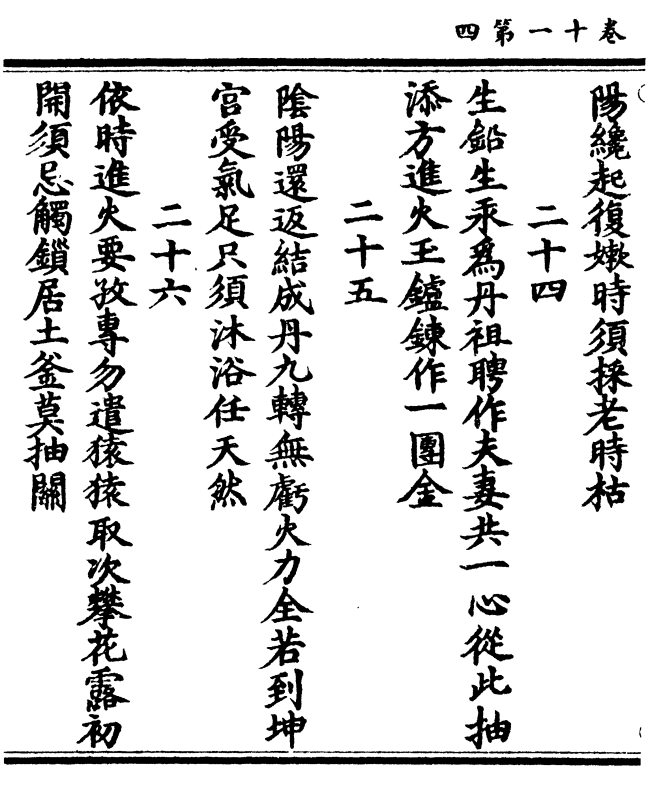 卷十一第四
陽纔起復嫰時須採老時枯
二十四
生鉛生汞爲丹祖聘作夫妻共一心從此抽
添方進火玉鑪鍊作一團金
二十五
陰陽還返結成丹九轉無虧火力全若到坤
宫受氣足只須沐浴任天然
二十六
依時進火要孜專勿遣猿猿取次攀花露初
開須忌觸鎖居土釜莫抽關